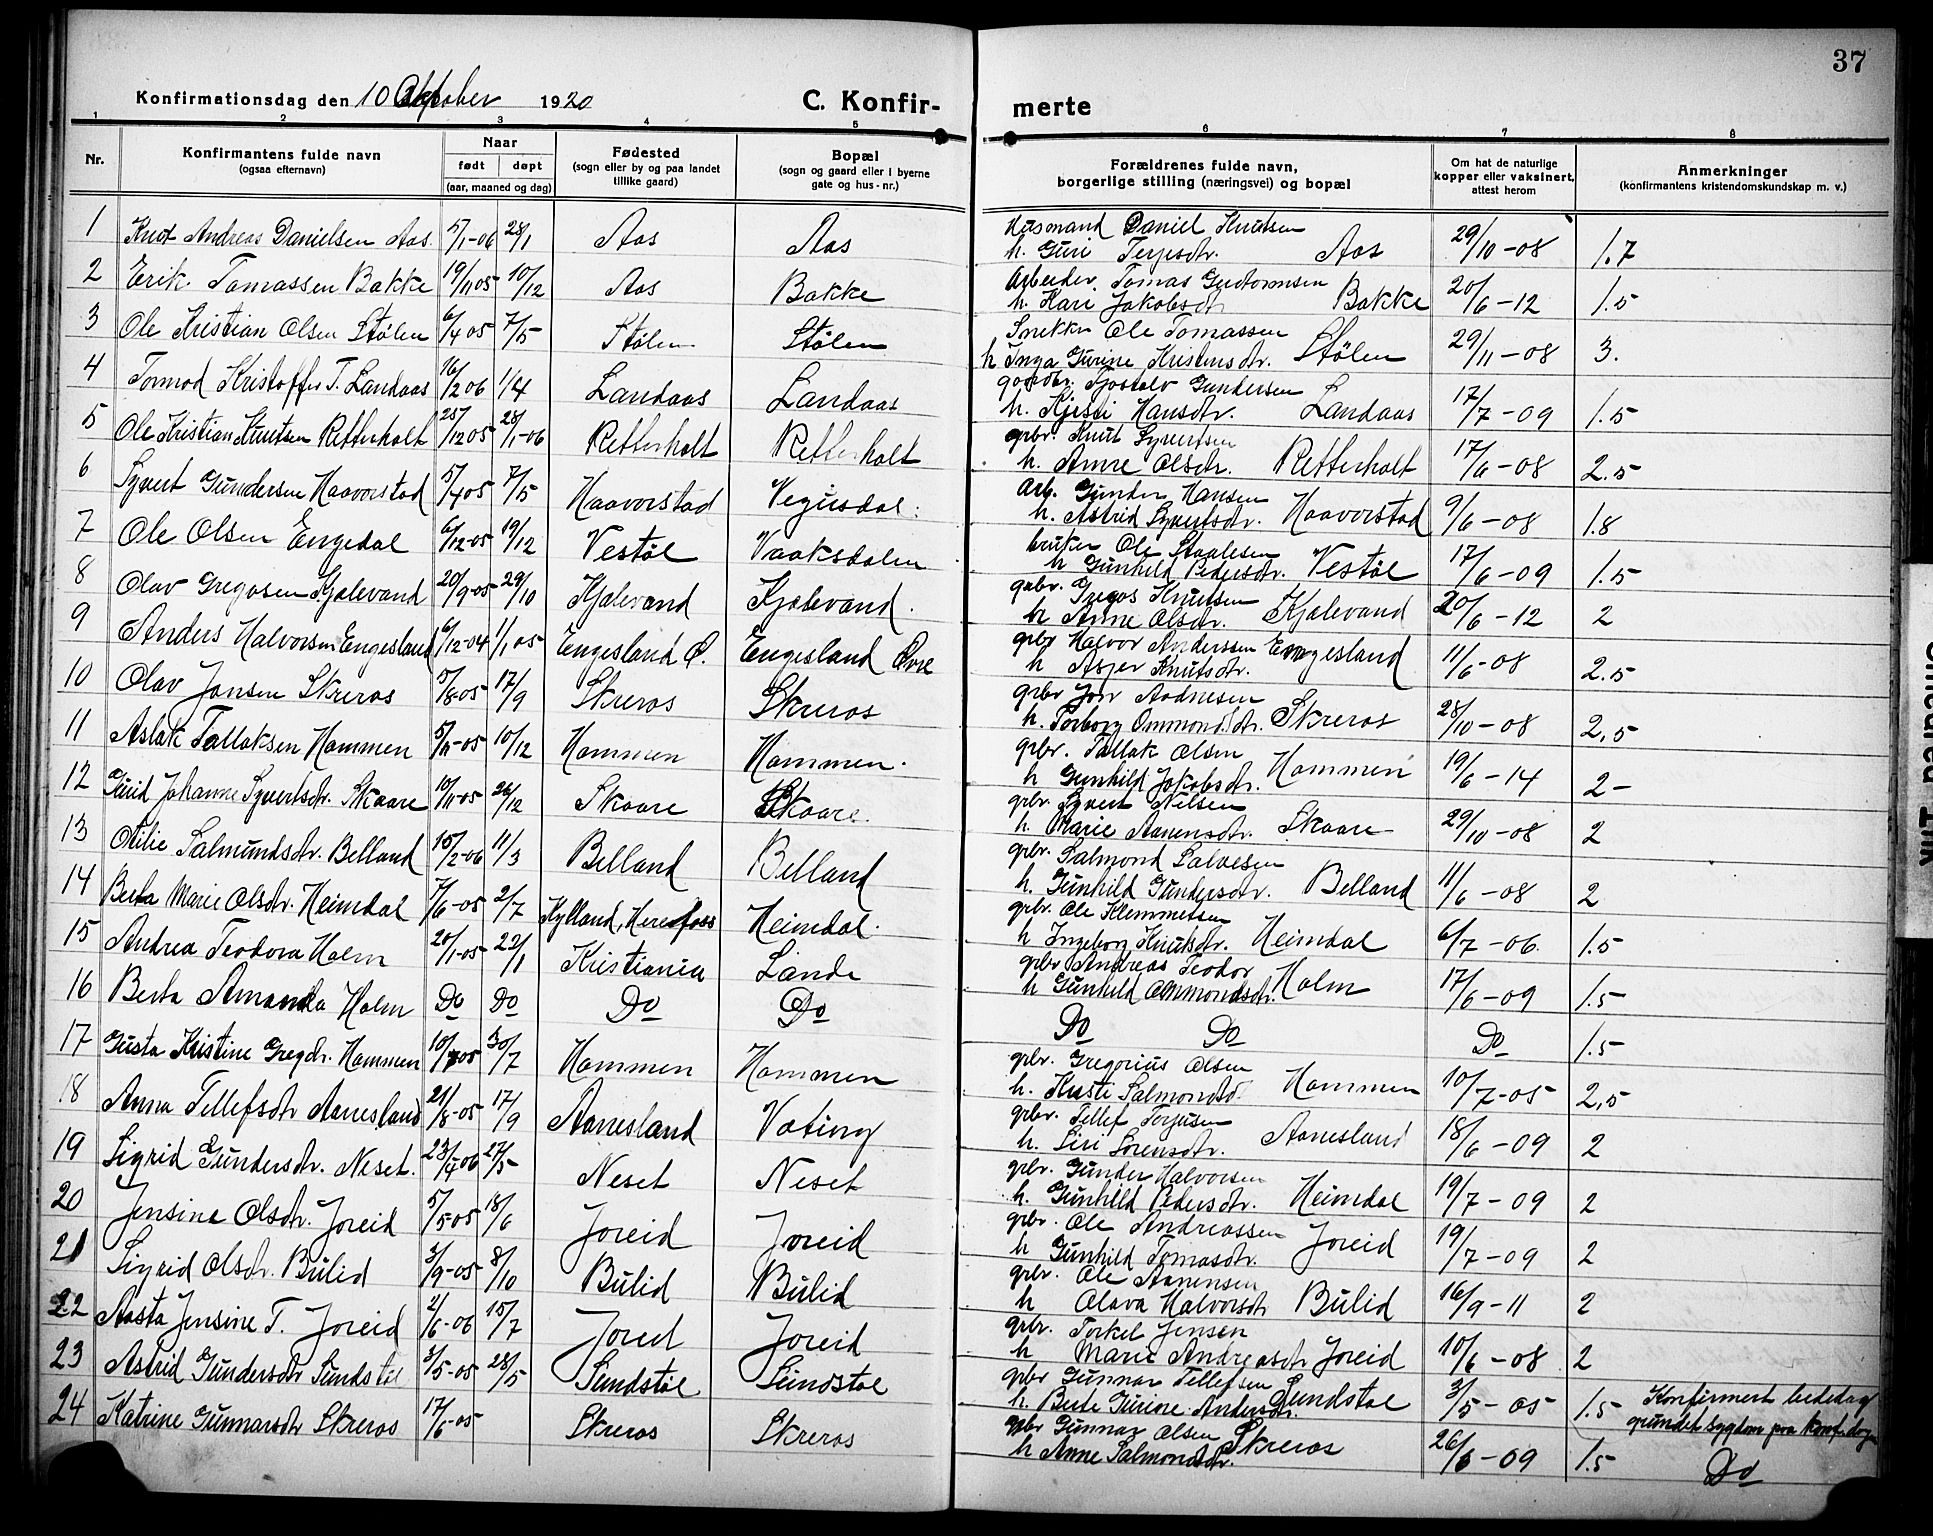 37
Konfirmationsdag den 10 Oktober 1920 C. Konfir- merte
1 2 3 4 5 6 7 8
Nr. Konfirmantens fulde navn (ogsaa efternavn) Naar født døpt (aar, maaned og dag) Fødested (sogn eller by og paa landet tillike gaard) Bopæl (sogn og gaard eller i byerne gate og hus-nr.) Forældrenes fulde navn, borgerlige stilling (næringsvei) og bopæl Om hat de naturlige kopper eller vaksinert, attest herom Anmerkninger (konfirmantens kristendomskundskap m. v.)
1 Knut Andreas Danielsen Aas. 5/1-06 28/1 Aas Aas Husmand Daniel Knutsen
h. Guri Terjesdtr. Aas 29/10-08 1.7
2 Erik Tomassen Bakke 19/11 05 10/12 Aas Bakke Arbeider. Tomas Guttormsen
h. Kari Jakobsdtr Bakke 20/6-12 1.5
3 Ole Kristian Olsen Stølen 6/4 05 7/5 Stølen Stølen Snekker Ole Tomassen
h Inga Gurine Kristensdtr. Stølen 29/11-08 3.
4 Tormod Kristoffer T. Landaas 16/2 06 1/4 Landaas Landaas gaardbr. Tjostolv Gundersen
h. Kjersti Hansdtr. Landaas 17/7-09 1.5
5 Ole Kristian Knutsen Retterholt 25/12 05 28/1-06 Retterholt Retterholt grbr. Knut Syvertsen
h. Anne Olsdtr. Retterholt 17/6-08 2.5
6 Syvert Gundersen Haavorstad 5/4 05 7/5 Haavorstad Vegusdal. Arb. Gunder Hansen
h. Astrid Syvertsdtr. Haavorstad 9/6-08 1.8
7 Ole Olsen Engedal 6/12-05 19/12 Vestøl Vaaksdalen bruker Ole Staalesen
h Gunhild Pedersdtr. Vestøl 17/6-09 1.5
8 Olav Gregosen Kjalevand 20/9-05 29/10 Kjalevand Kjalevand. grbr. Gregos Knutsen
h Anne Olsdtr. Kjalevand 20/6-12 2
9 Anders Halvorsen Engesland 6/12-04 1/1 05 Engesland Ø. Engesland Øvre grbr Halvor Anderssen Engesland
h Asjer Knutsdtr. 11/6-08 2.5
10 Olav Jonsen Skreros 5/8-05 17/9 Skreros Skreros grbr Jon Aadnesen
h. Torborg Ommondsdtr. Skreros 28/10-08 2,5
11 Aslak Tallaksen Hommen 5/11-05 10/12 Hommen Hommen. grbr. Tallak Olsen
h Gunhild Jakobsdtr. Hommen 19/6-14 2-
12 Gurid Johanne Syvertsdtr. Skaare 10/11-05 26/12 Skaare Skaare. grbr. Syvert Nelsen
h. Marie Aanensdtr. Skaare 29/10-08 2
13 Otilie Salmundsdtr. Belland 15/2-06 11/3 Belland Belland grbr. Salmond Salvesen
h. Gunhild Gundersdtr. Belland 11/6-08 2
14 Berta Marie Olsdtr. Heimdal 7/6-05 2/7 Kylland, Herefoss Heimdal. grbr. Ole Klemmetsen
h Ingeborg Knutsdtr. Heimdal 6/7-06 1.5
15 Andrea Teodora Holm 20/1-05 22/1 Kristiania Lande grbr Andreas Teodor
h Gunhild Ommondsdtr. Holm 17/6-09 1.5
16 Berta Amanda Holm Do Do Do Do Do Do Do 1.5
17 Gusta Kristine Gregdtr. Hommen 10/7 05 30/7 Hommen Hommen grbr. Gregorius Olsen
h. Kristi Salmondsd. Hommen 10/7-05 2,5
18 Anna Tellefsdtr Aanesland 21/8-05 17/9 Aanesland Vating grbr. Tellef Terjusen
h. Siri Sørensdtr. Aanesland 18/6-09 2
19 Sigrid Gundersdtr. Neset. 23/4-06 27/5 Neset Neset grbr. Gunder Halvorsen
h. Gunhild Pedersdtr. Heimdal 19/7-09 2
20 Jensine Olsdtr. Joreid 5/5-05 18/6 Joreid Joreid grbr. Ole Andreassen
h Gunhild Tomasdtr. Joreid 19/7-09 2
21 Sigrid Olsdtr. Bulid 3/9-05 8/10 Bulid Bulid grbr. Ole Aanensen
h Olava Halvorsdtr Bulid 16/9-11 2
22 Aasta Jensine T. Joreid 2/6-06 15/7 Joreid Joreid grbr. Torkel Jensen
h Marie Andreasdtr Joreid 10/6-08 2
23 Astrid Gundersdtr Sundstøl 3/5-05 28/5 Sundstøl Sundstøl grbr Gunnar Tellefsen
h. Berte Gurine Andersdtr. Sundstøl 3/5-05 1.5 Konfirmert bededag
grundet sygdom paa konf.dagen
24 Katrine Gunnarsdtr Skreros 17/6-05 Skreros Skreros grbr Gunnar Olsen
h Anne Salmondsdtr. Skreros 26/6-09 1.5 Do